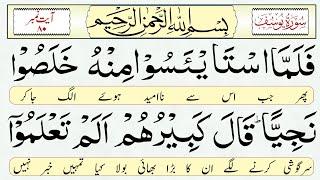 سورۃ یوسف
بِسْمِ اللهِ الرَّحْمٰنِ الرَّحِيْمِ
آیت نمبر ۸۰
فَلَمَّا اسْتَايْئَسُوْا مِنْهُ خَلَصُوْا
پھر جب اس سے ناامید ہوئے الگ جا کر
نَجِيًّا ؕ قَالَ كَبِيْرُهُمْ اَلَمْ تَعْلَمُوْۤا
سرگوشی کرنے لگے ان کا بڑا بھائی بولا کیا تمہیں خبر نہیں